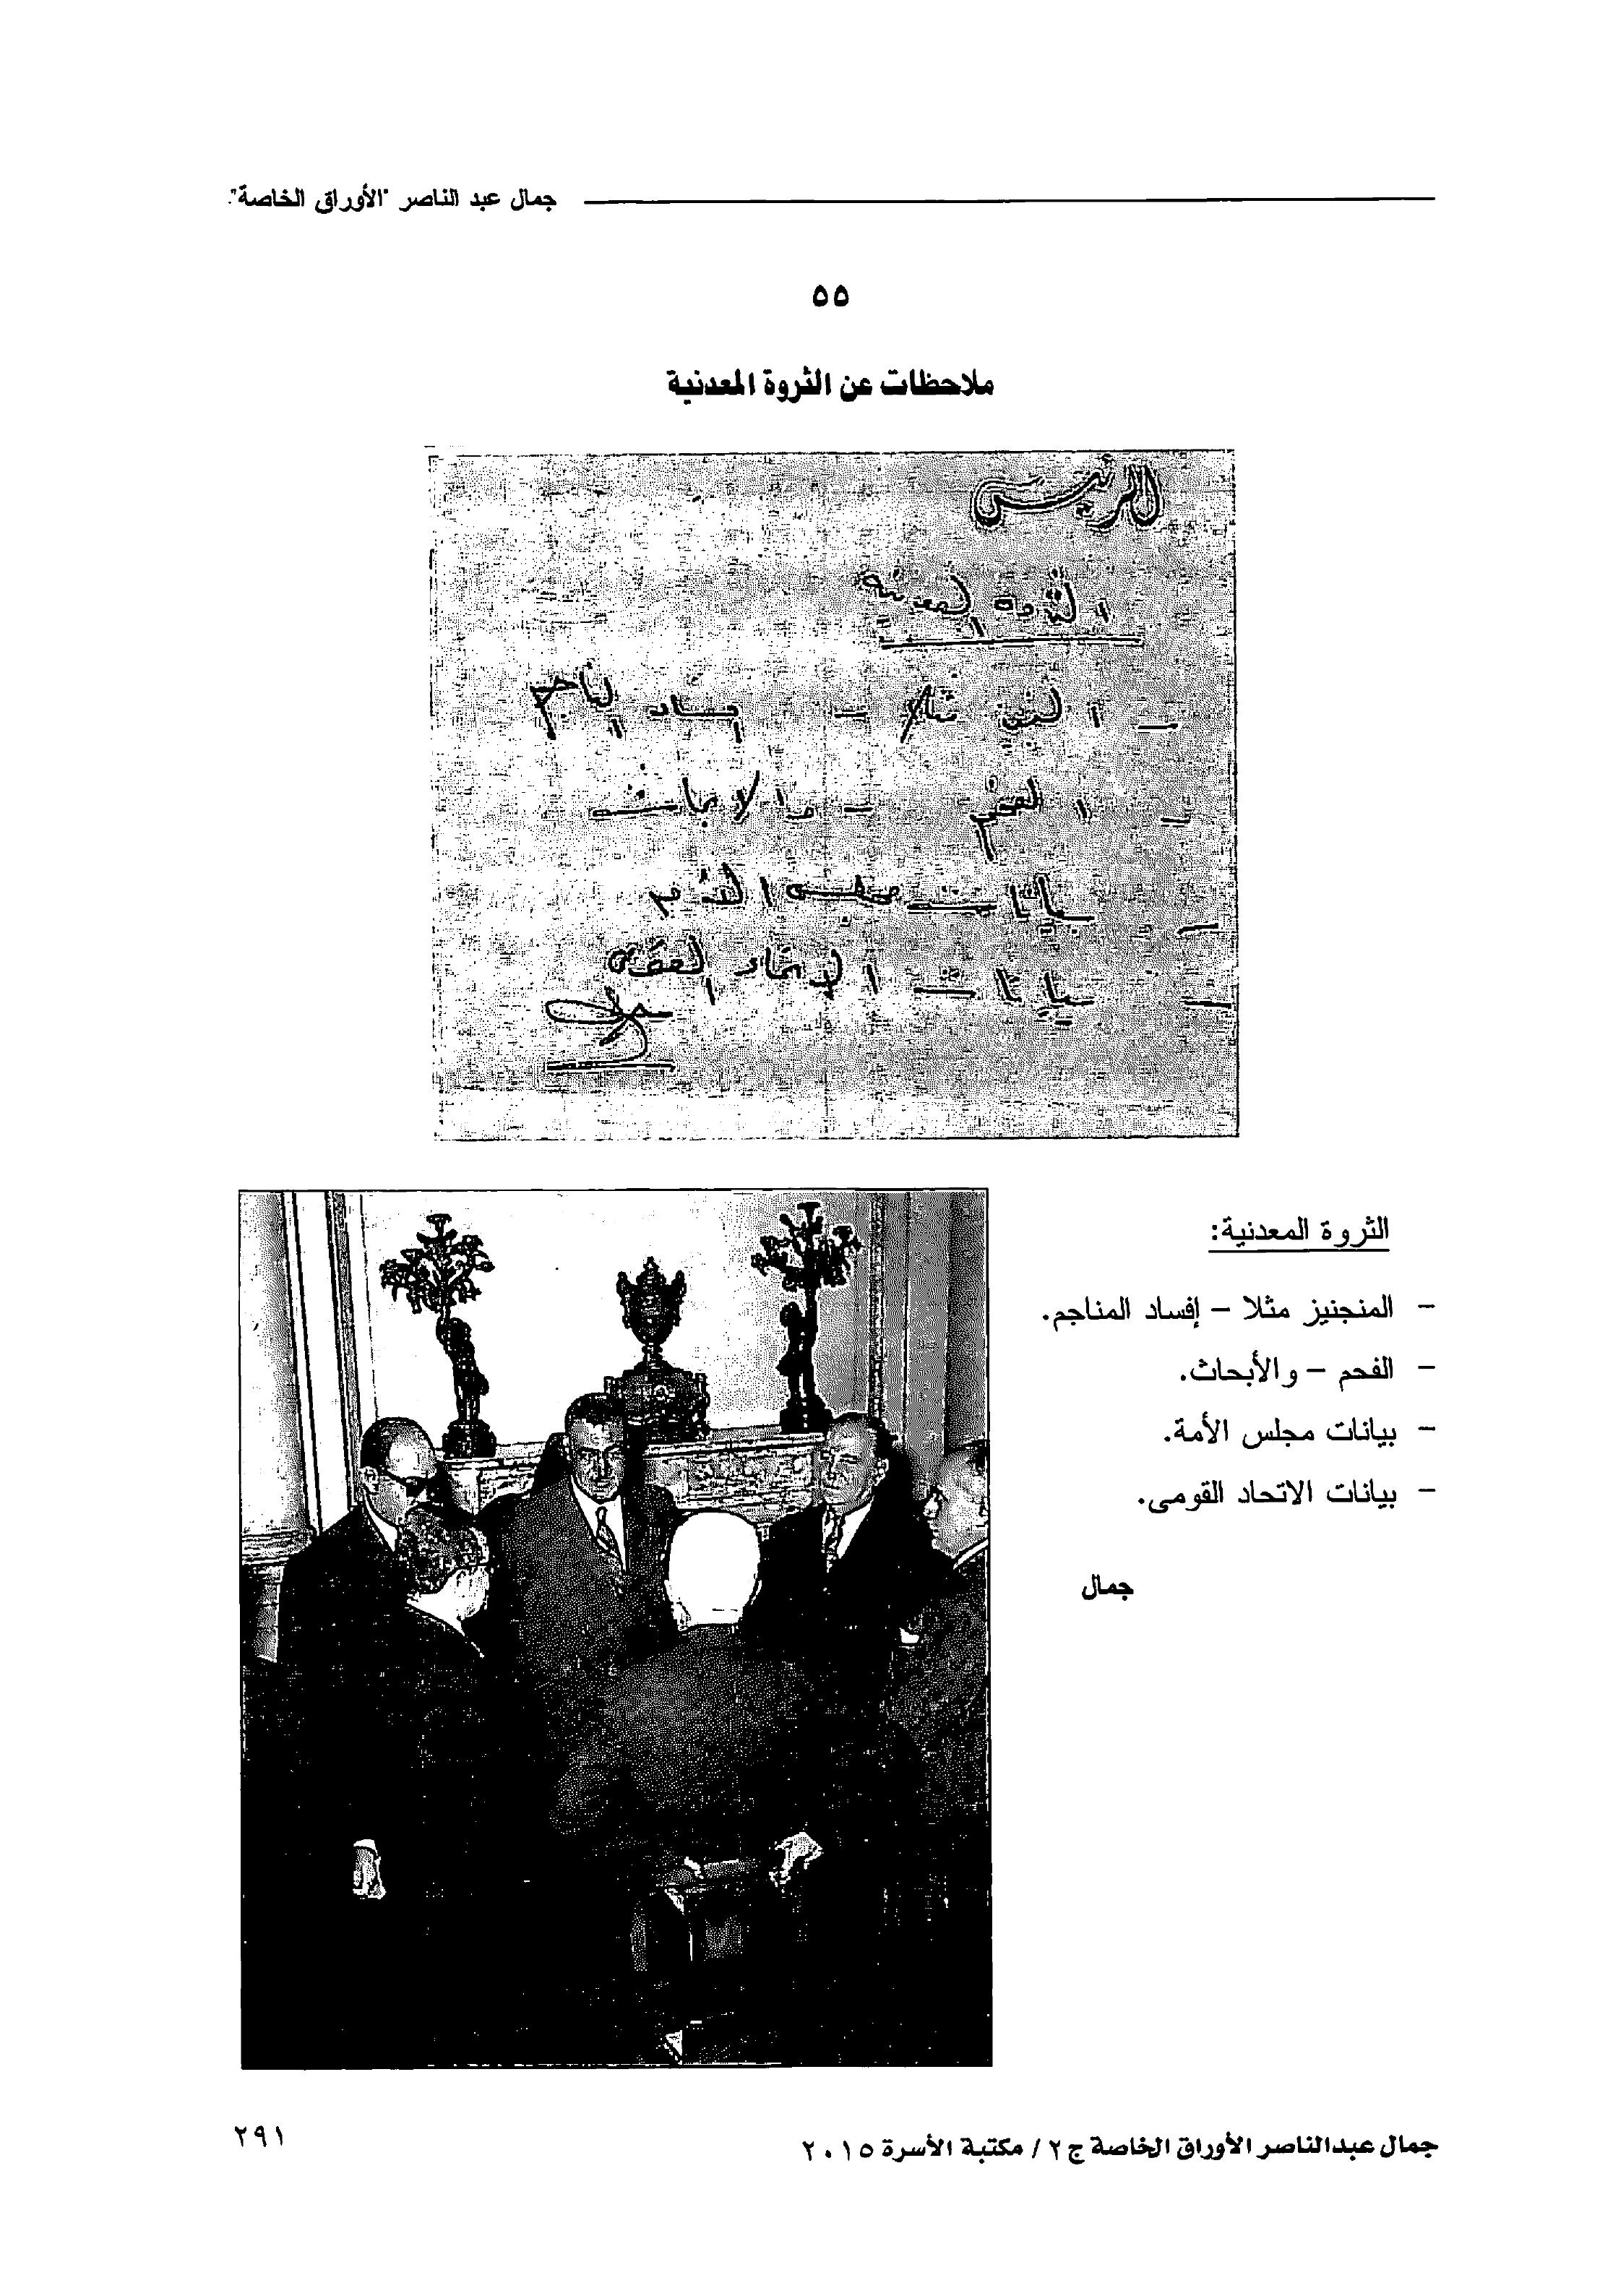 جمال عبد الناصر "الأوراق الخاصة".
٥٥
ملاحظات عن الثروة المعدنية
الرئيس
الثروة المعدنية
– المنجنيز مثلا – إفساد المناجم
– الفحم – والأبحاث
– بيانات مجلس الأمة
– بيانات الاتحاد القومى
جمال
الثروة المعدنية:
– المنجنيز مثلا – إفساد المناجم.
– الفحم – والأبحاث.
– بيانات مجلس الأمة.
– بيانات الاتحاد القومى.
جمال
جمال عبدالناصر الأوراق الخاصة ج ٢ / مكتبة الأسرة ٢٠١٥
٢٩١